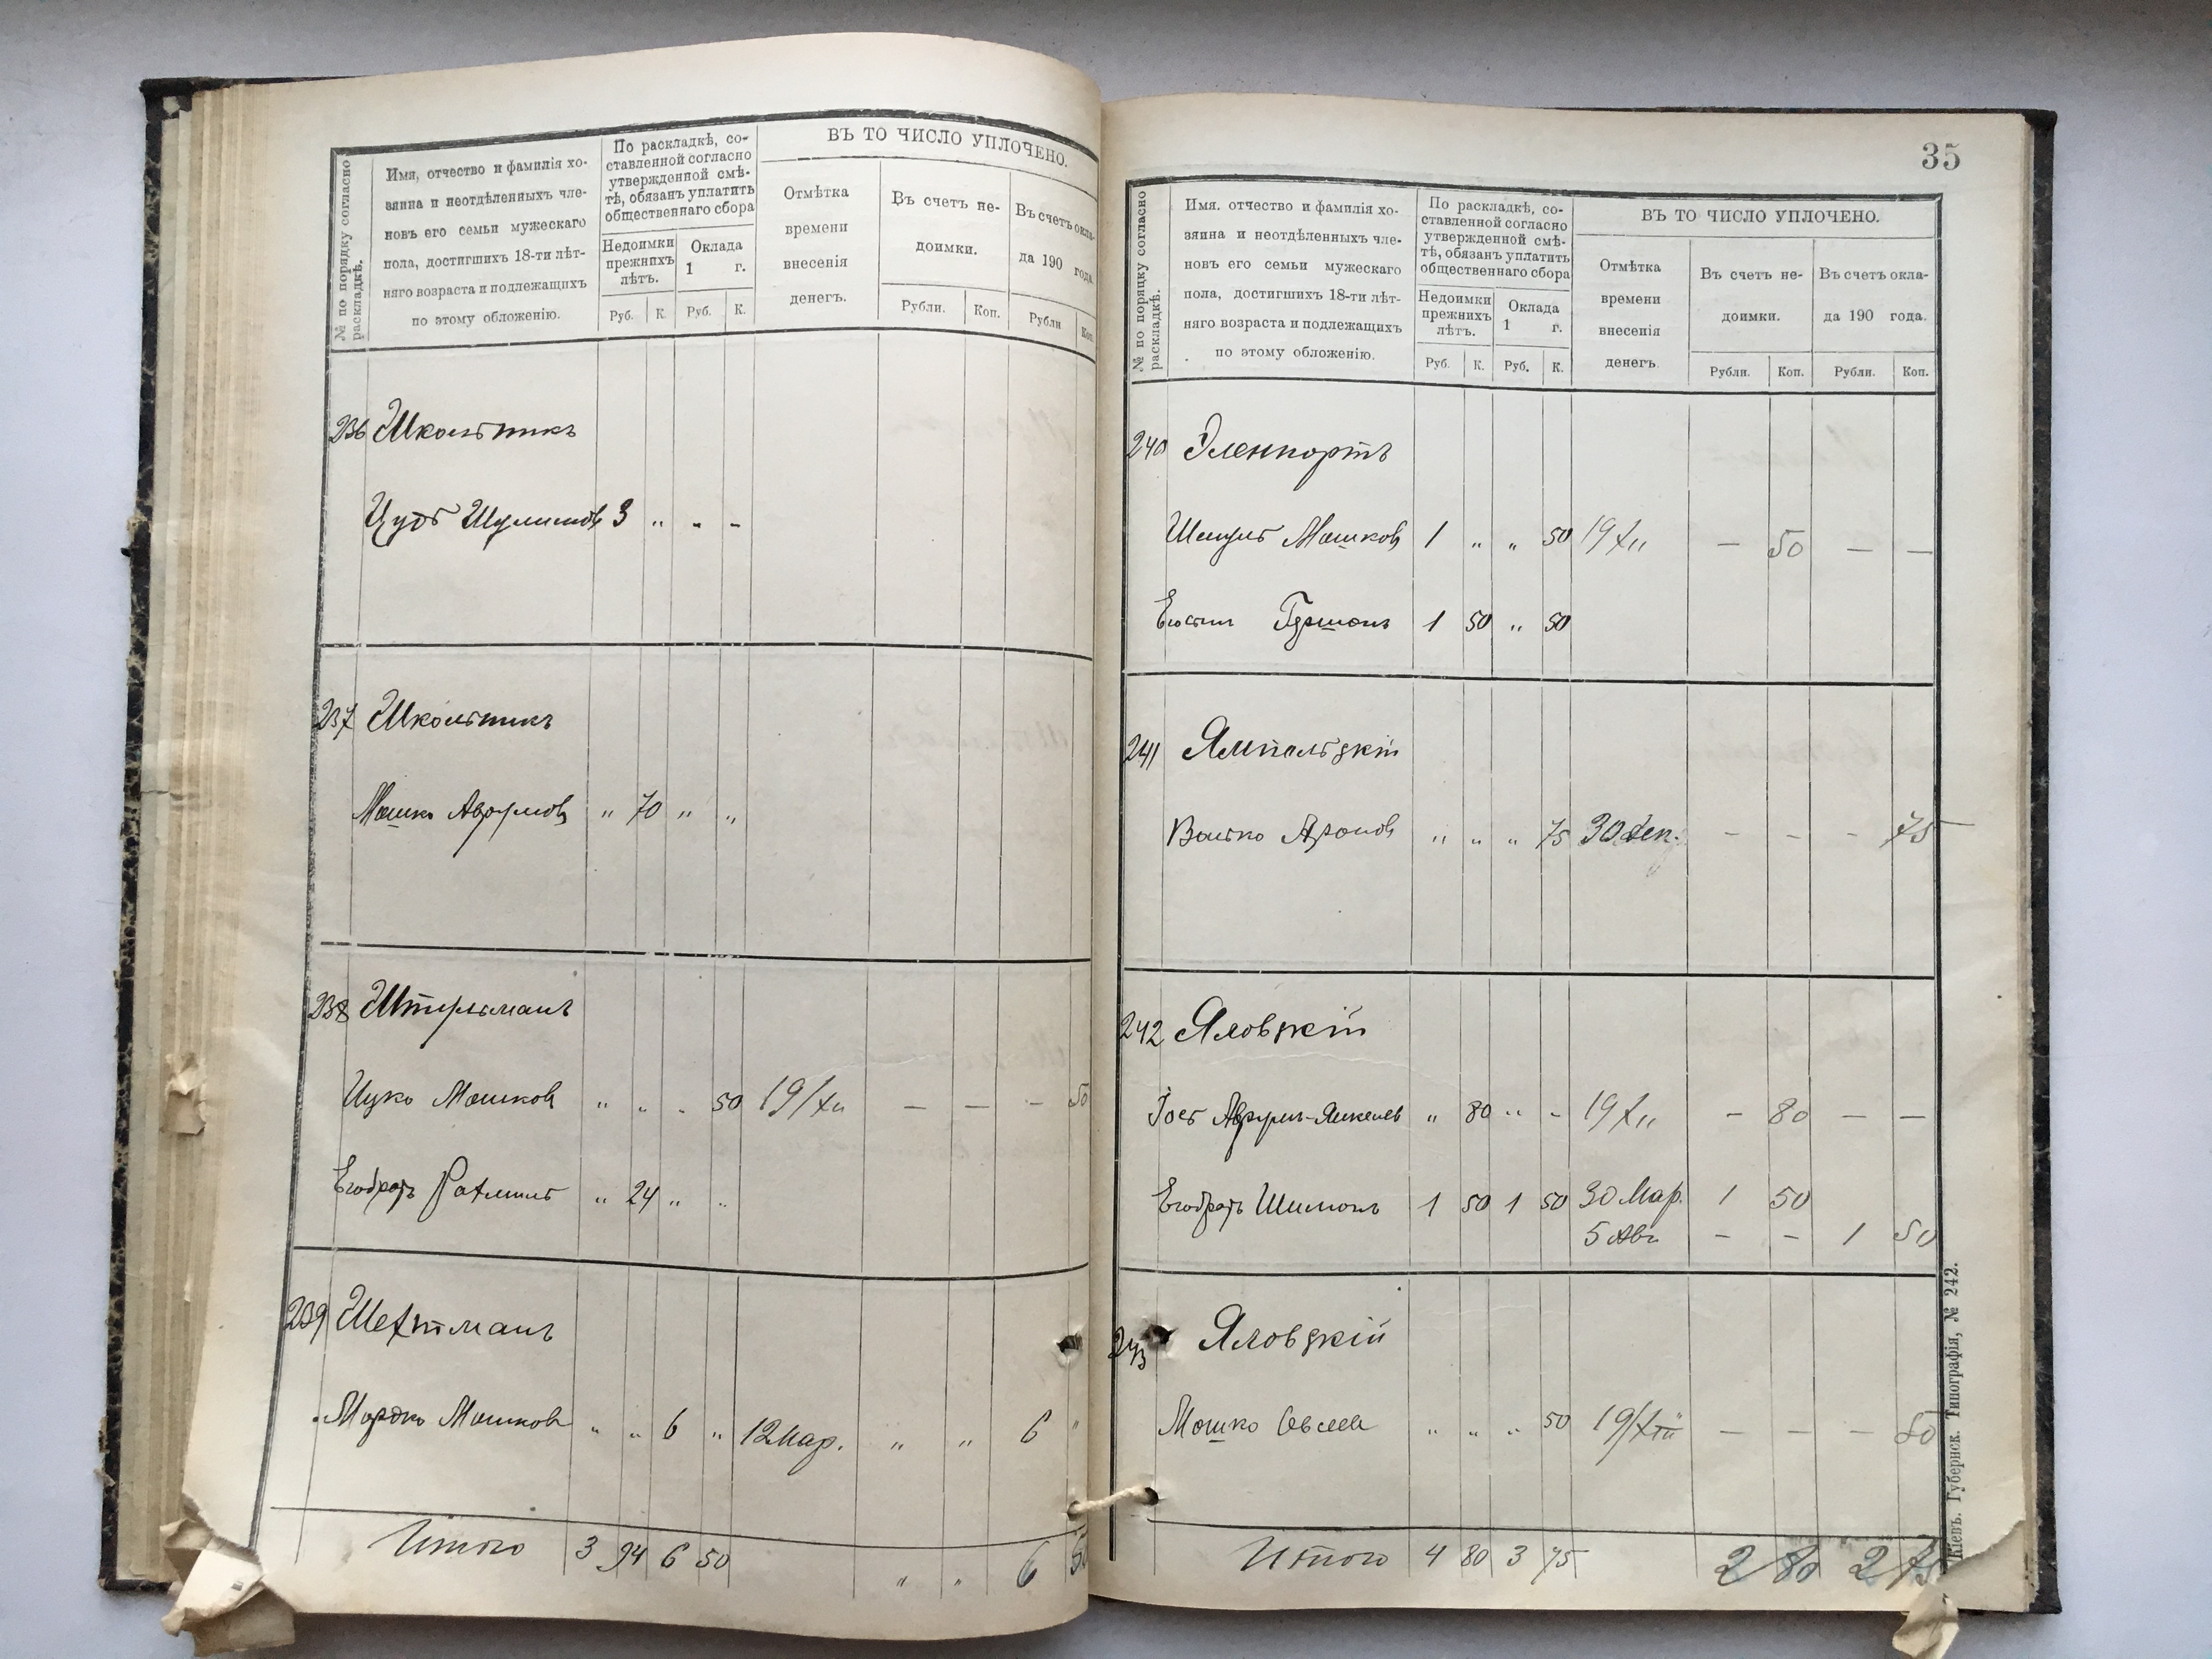 № по порядку согласно раскладкѣ.
Имя, отчество и фамилія хо-
зяина и неотдѣленныхъ чле-
новъ его семьи мужескаго
пола, достигшихъ 18-ти лѣт-
няго возраста и подлежащихъ
по этому обложенію.
По раскладкѣ, со-
ставленной согласно
утвержденной смѣ-
тѣ, обязанъ уплатить
общественнаго сбора
Недоимки прежнихъ лѣтъ.
Оклада 1 г.
Руб. К. Руб. К.
ВЪ ТО ЧИСЛО УПЛОЧЕНО.
Отмѣтка
времени
внесенія
денегъ.
Въ счетъ не-
доимки.
Въ счетъ окла-
да 190 года.
Рубли. Коп. Рубли Коп.
236 Школьникъ
3 " - -
237 Школьникъ
Мошко Аврумовъ " 70 " "
238 Штирьманъ
Ицко Мошковъ " " - 50 19/XII — — — 50
Егобратъ Рахмиль " 24 " "
239 Шехтманъ
Мордко Мошковъ " " 6 " 12 Мар. " " 6 "
Итого 3 94 6 50 " " 6 50
35
№ по порядку согласно раскладкѣ.
Имя. отчество и фамилія хо-
зяина и неотдѣленныхъ чле-
новъ его семьи мужескаго
пола, достигшихъ 18-ти лѣт-
няго возраста и подлежащихъ
по этому обложенію.
По раскладкѣ, со-
ставленной согласно
утвержденной смѣ-
тѣ, обязанъ уплатить
общественнаго сбора
Недоимки прежнихъ лѣтъ.
Оклада 1 г.
Руб. К. Руб. К.
ВЪ ТО ЧИСЛО УПЛОЧЕНО.
Отмѣтка
времени
внесенія
денегъ.
Въ счетъ не-
доимки.
Въ счетъ окла-
да 190 года.
Рубли. Коп. Рубли. Коп.
240 Эленкортъ
Мошковъ 1 " " 50 19 XII — 50 — —
Гершонъ 1 50 " 50
241 Ямпольскій
Волько Ароновъ " " " 75 30 Дек. - - - 75
242 Яловскій
Іось Аврумъ-Янкелевъ " 80 " - 19 XII - 80 — —
Егобратъ Шимонъ 1 50 1 50 30 Мар. 1 50
5 Авг - - 1 50
243 Яловскій
Мошко Овсеевъ " " " 50 19/XII — — — 50
Итого 4 80 3 75 2 80 2 75
Кіевъ. Губернск. Типографія, № 242.